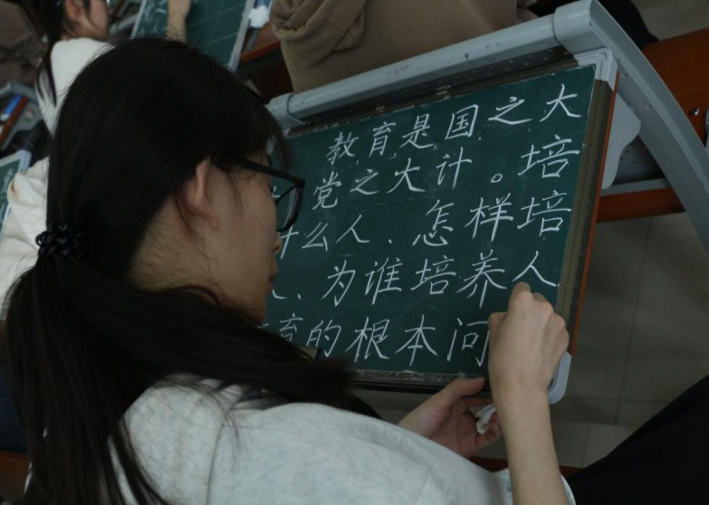 教育是国之大
党之大计。培
什么人、怎样培
、为谁培养人
育的根本问